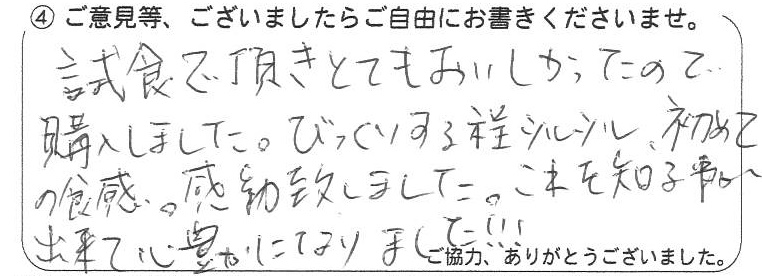 ④ ご意見等、ございましたらご自由にお書きくださいませ。
試食で頂きとてもおいしかったので
購入しました。びっくりする程シルシル、初めて
の食感。感動致しました。これを知る事が
出来て心豊かになりました!!!
ご協力、ありがとうございました。